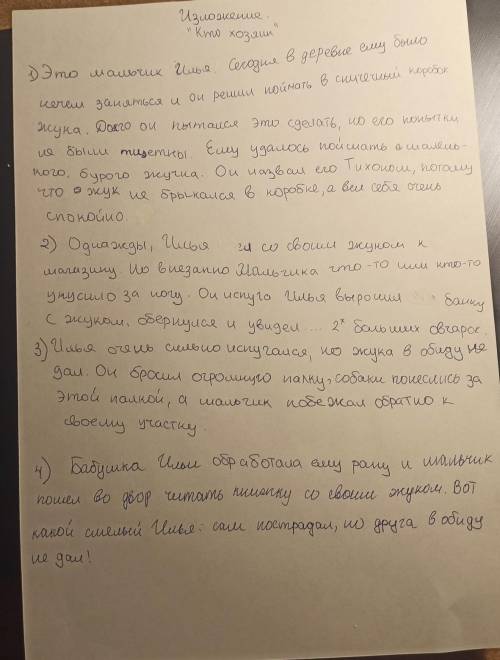 Изложение.
"Кто хозяин"
1) Это мальчик Илья. Сегодня в деревне ему было
нечем заняться и он решил поймать в спичечный коробок
жука. Долго он пытался это сделать, но его попытки
не были тщетны. Ему удалось поймать малень-
кого, бурого жучка. Он назвал его Тихоном, потому
что жук не брыкался в коробке, а вел себя очень
спокойно.
2) Однажды, Илья со своим жуком к
магазину. Но внезапно мальчика что-то или кто-то
укусило за ногу. От испуга Илья выронил банку
с жуком, обернулся и увидел ... 2х больших овчарок.
3) Илья очень сильно испугался, но жука в обиду не
дал. Он бросил огромную палку, собаки понеслись за
этой палкой, а мальчик побежал обратно к
своему участку.
4) Бабушка Ильи обработала ему рану и мальчик
пошел во двор читать книжку со своим жуком. Вот
какой смелый Илья: сам пострадал, но друга в обиду
не дал!